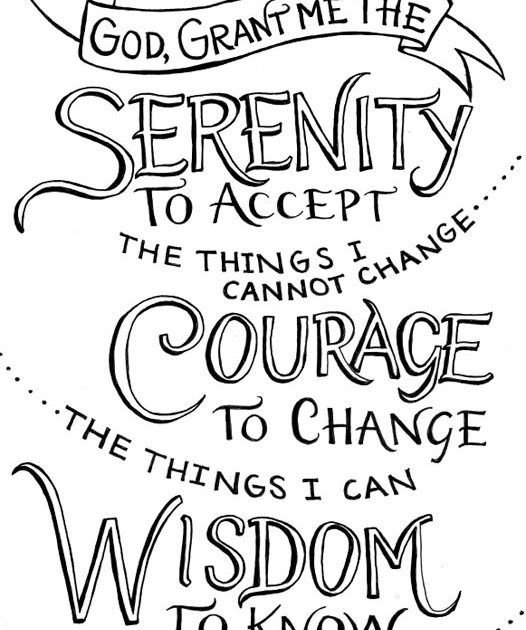 GOD, GRANT ME THE
SERENITY
TO ACCEPT
THE THINGS I
CANNOT CHANGE
COURAGE
TO CHANGE
THE THINGS I CAN
WISDOM
TO KNOW